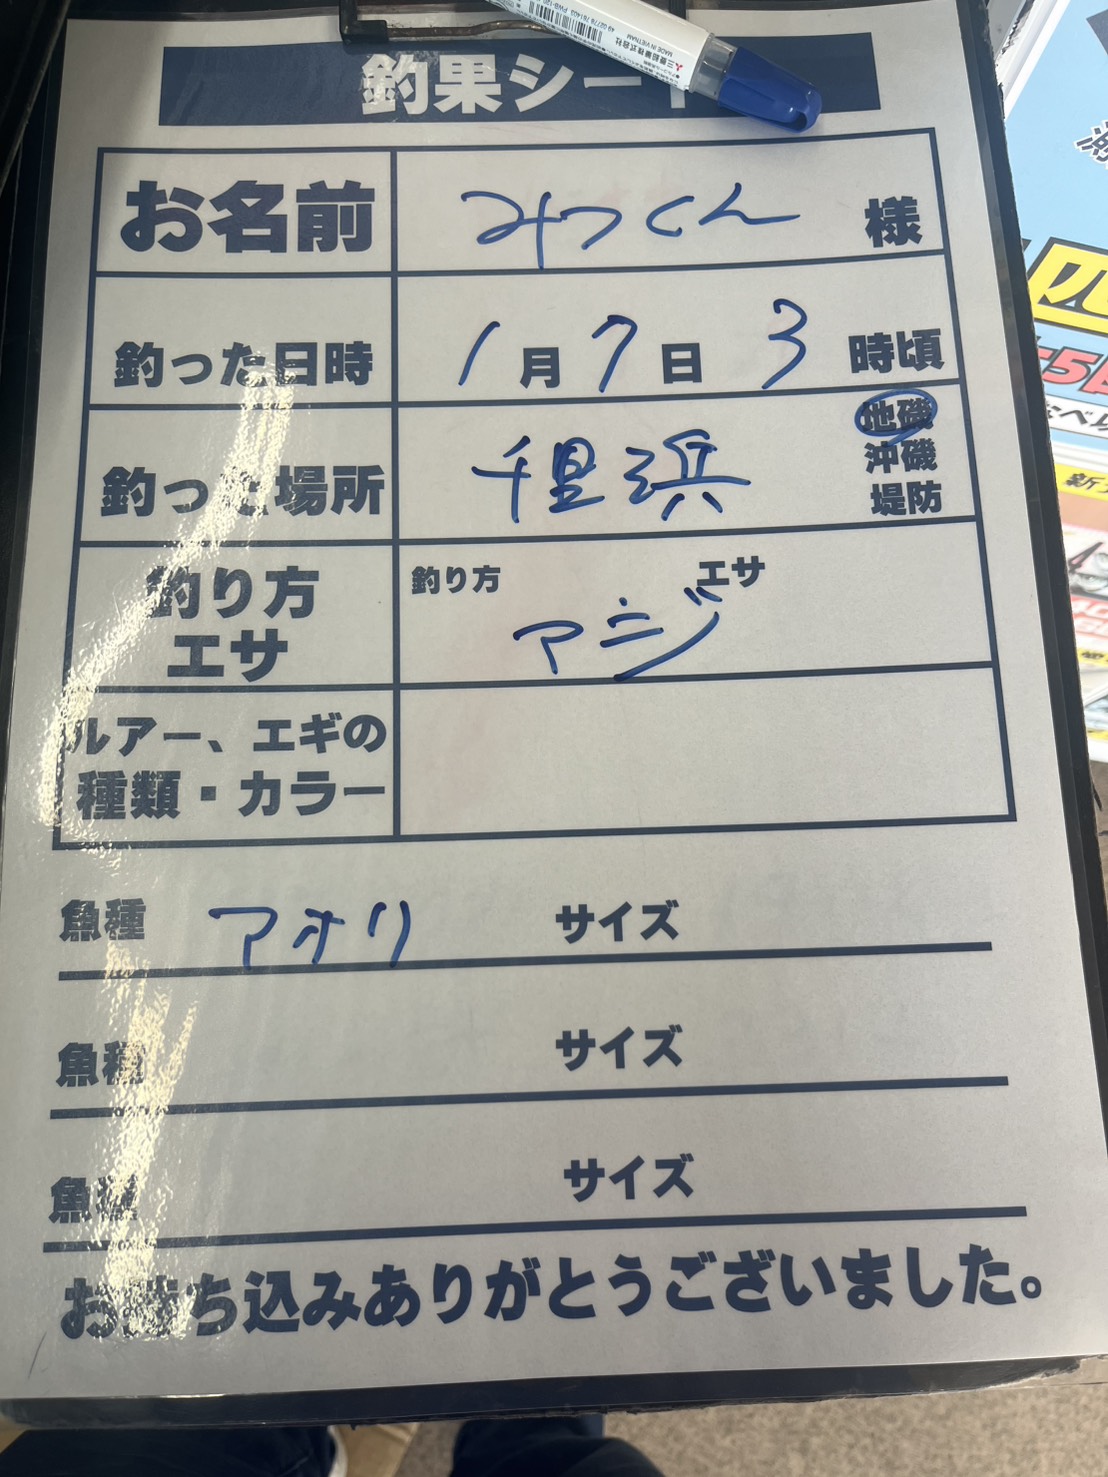 三菱鉛筆株式会社
MADE IN VIETNAM
釣果シート
お名前 みつくん 様
釣った日時 1月7日 3時頃
釣った場所 千里浜 地磯
沖磯
堤防
釣り方 エサ
釣り方
エサ
アジ
ルアー、エギの
種類・カラー
魚種 アオリ サイズ
魚種 サイズ
魚種 サイズ
お持ち込みありがとうございました。